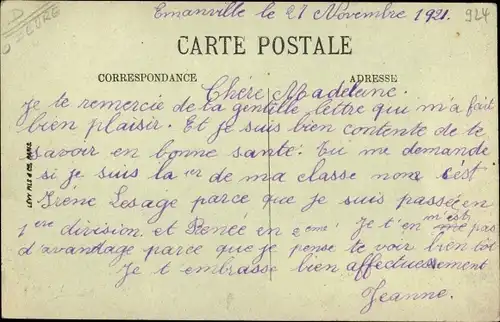 D
EURE
Emanville le 27 Novembre 1921.
924
CARTE POSTALE
CORRESPONDANCE
ADRESSE
Chere Madeleine.
Je te remercie de ta gentille lettre qui m'a fait
bien plaisir. Et je suis bien contente de te
savoir en bonne santé. Tu me demande
si je suis la 1er de ma classe non c'est
Irène Lesage parce que je suis passée en
1ere division et Renée en 2eme. Je t'en m'est pas
d'avantage parce que je pense te voir bientot
Je t embrasse bien affectueusement
Jeanne.
LÉVY FILS & Cie, PARIS